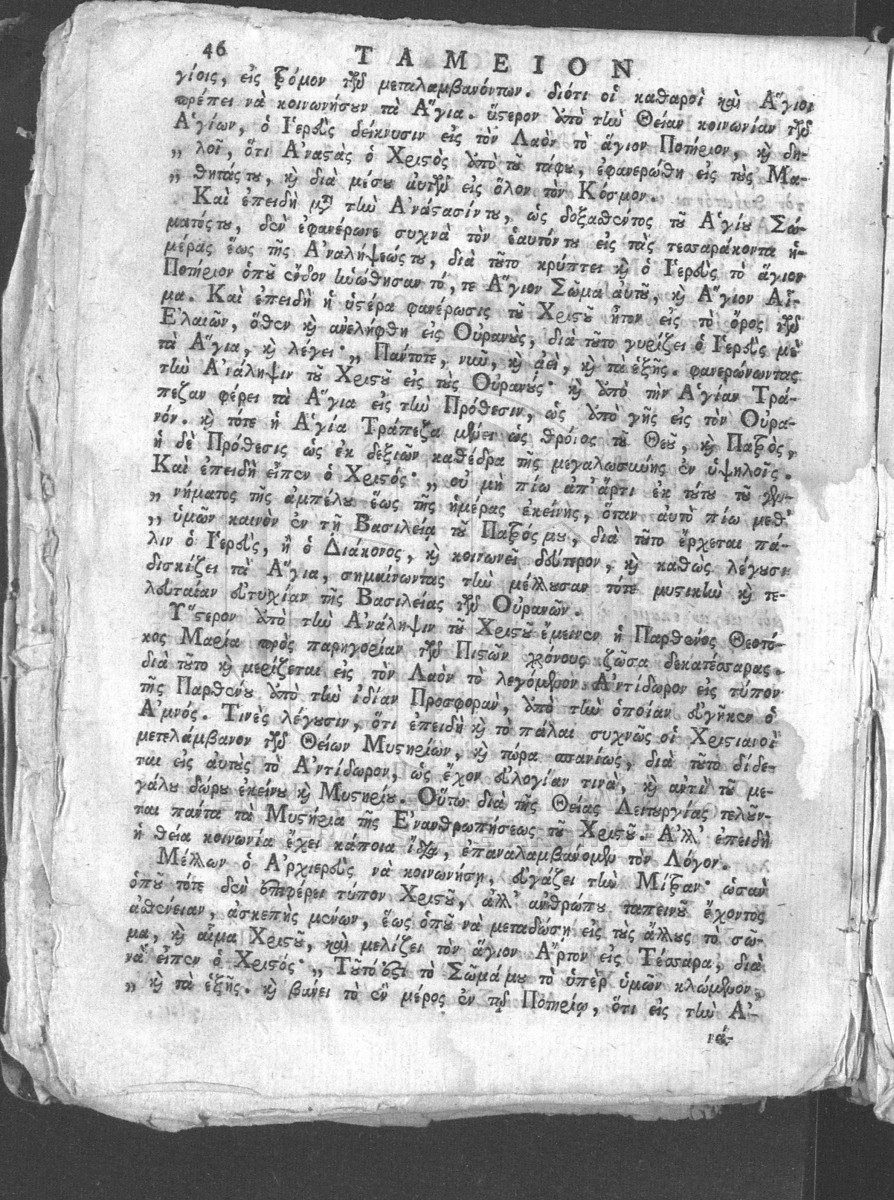 46 ΤΑΜΕΙΟΝ
γίοις, εἰς τρόμον τῶν μεταλαμβανόντων. διότι οἱ καθαροὶ καὶ Ἅγιοι
πρέπει νὰ κοινωνήσουν τὰ Ἅγια. ὕστερον ἀπὸ τὴν Θείαν κοινωνίαν τῶν
Ἁγίων, ὁ Ἱερεὺς δείκνυσιν εἰς τὸν Λαὸν τὸ ἅγιον Ποτήριον, καὶ δη-
„ λοῖ, ὅτι Ἀναστὰς ὁ Χριστὸς ἀπὸ τοῦ τάφου, ἐφανερώθη εἰς τοὺς Μα-
„ θητάς του, καὶ διὰ μέσου αὐτῶν εἰς ὅλον τὸν Κόσμον.
Καὶ ἐπειδὴ μετὰ τὴν Ἀνάστασίν του, ὡς δοξασθέντος τοῦ Ἁγίου Σώ-
ματός του, δὲν ἐφανέρωνε συχνὰ τὸν ἑαυτόν του εἰς τὰς τεσσαράκοντα ἡ-
μέρας ἕως τῆς Ἀναλήψεώς του, διὰ τοῦτο κρύπτει καὶ ὁ Ἱερεὺς τὸ ἅγιον
Ποτήριον ὁποῦ ἔνδον ἡνώθησαν τό, τε Ἅγιον Σῶμα αὐτοῦ, καὶ Ἅγιον Αἷ-
μα. Καὶ ἐπειδὴ ἡ ὑστέρα φανέρωσις τοῦ Χριστοῦ ἦτον εἰς τὸ ὄρος τῶν
Ἐλαιῶν, ὅθεν καὶ ἀνελήφθη εἰς Οὐρανούς, διὰ τοῦτο γυρίζει ὁ Ἱερεὺς μὲ
τὰ Ἅγια, καὶ λέγει· „ Πάντοτε, νῦν, καὶ ἀεὶ, καὶ τὰ ἑξῆς. φανερώνωντας
τὴν Ἀνάληψιν τοῦ Χριστοῦ εἰς τοὺς Οὐρανούς· καὶ ἀπὸ τὴν Ἁγίαν Τρά-
πεζαν φέρει τὰ Ἅγια εἰς τὴν Πρόθεσιν, ὡς ἀπὸ γῆς εἰς τὸν Οὐρα-
νόν. καὶ τότε ἡ Ἁγία Τράπεζα μένει ὡς θρόνος τοῦ Θεοῦ, καὶ Πατρὸς,
ἡ δὲ Πρόθεσις ὡς ἐκ δεξιῶν καθέδρα τῆς μεγαλωσύνης ἐν ὑψηλοῖς.
Καὶ ἐπειδὴ εἶπεν ὁ Χριστός· „ οὐ μὴ πίω ἀπ' ἄρτι ἐκ τούτου τοῦ γεν-
„ νήματος τῆς ἀμπέλου ἕως τῆς ἡμέρας ἐκείνης, ὅταν αὐτὸ πίω μεθ'
„ ὑμῶν καινὸν ἐν τῇ Βασιλείᾳ τοῦ Πατρός μου, διὰ τοῦτο ἔρχεται πά-
λιν ὁ Ἱερεὺς, ἢ ὁ Διάκονος, καὶ κοινωνεῖ δεύτερον, καὶ καθὼς λέγουσι
δισκίζει τὰ Ἅγια, σημαίνωντας τὴν μέλλουσαν τότε μυστικὴν καὶ τε-
λευταίαν εὐτυχίαν τῆς Βασιλείας τῶν Οὐρανῶν.
Ὕστερον ἀπὸ τὴν Ἀνάληψιν τοῦ Χριστοῦ ἔμεινεν ἡ Παρθένος Θεοτό-
κος Μαρία πρὸς παρηγορίαν τῶν Πιστῶν χρόνους ζῶσα δεκατέσσαρας.
διὰ τοῦτο καὶ μερίζεται εἰς τὸν Λαὸν τὸ λεγόμενον Ἀντίδωρον εἰς τύπον
τῆς Παρθένου ἀπὸ τὴν ἰδίαν Προσφορὰν, ἀπὸ τὴν ὁποίαν εὐγῆκεν ὁ
Ἀμνός. Τινὲς λέγουσιν, ὅτι ἐπειδὴ καὶ τὸ πάλαι συχνῶς οἱ Χριστιανοὶ
μετελάμβανον τῶν Θείων Μυστηρίων, καὶ τώρα σπανίως, διὰ τοῦτο δίδε-
ται εἰς αὐτοὺς τὸ Ἀντίδωρον, ὡς ἔχον εὐλογίαν τινὰ, καὶ ἀντὶ τοῦ με-
γάλου δώρου ἐκείνου καὶ Μυστηρίου. Οὕτω διὰ τῆς Θείας Λειτουργίας τελοῦν-
ται πάντα τὰ Μυστήρια τῆς Ἐνανθρωπήσεως τοῦ Χριστοῦ. Ἀλλ' ἐπειδὴ
ἡ θεία κοινωνία ἔχει κάποια ἴδια, ἐπαναλαμβάνομεν τὸν Λόγον.
Μέλλων ὁ Ἀρχιερεὺς νὰ κοινωνήσῃ, εὐγάζει τὴν Μίτραν· ὡσὰν
ὁποῦ τότε δὲν ἐπιφέρει τύπον Χριστοῦ, ἀλλ' ἀνθρώπου ταπεινοῦ ἔχοντος
ἀσθένειαν, ἀσκεπὴς μένων, ἕως ὁποῦ νὰ μεταδώσῃ εἰς τοὺς ἄλλους τὸ σῶ-
μα, καὶ αἷμα Χριστοῦ, καὶ μελίζει τὸν ἅγιον Ἄρτον εἰς Τέσσαρα, διὰ
νὰ εἶπεν ὁ Χριστός· „ Τοῦτό ἐστι τὸ Σῶμά μου τὸ ὑπὲρ ὑμῶν κλώμενον,
„ καὶ τὰ ἑξῆς. καὶ βάνει τὸ ἓν μέρος ἐν τῷ Ποτηρίῳ, ὅτι εἰς τὴν Ἀ-